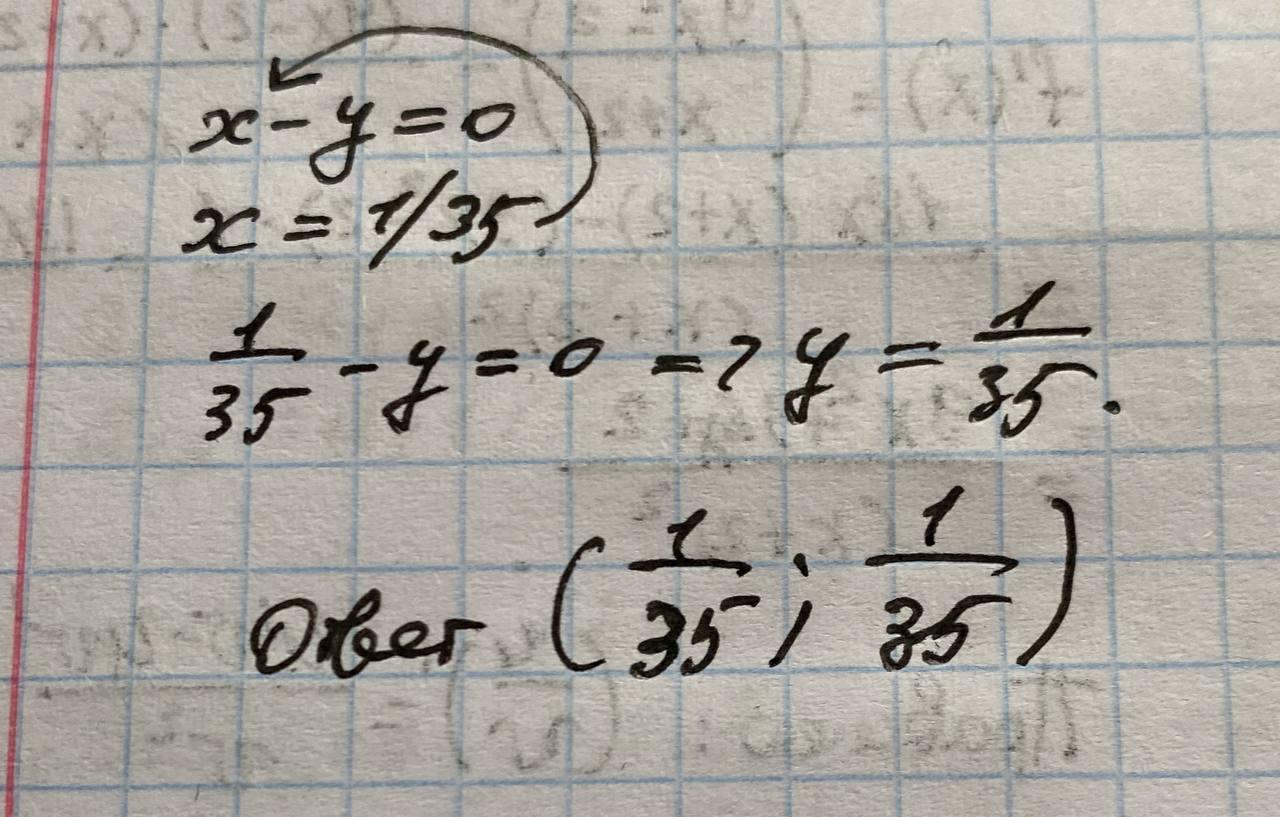 x - y = 0
x = 1/35
1/35 - y = 0 => y = 1/35.
Ответ (1/35; 1/35)